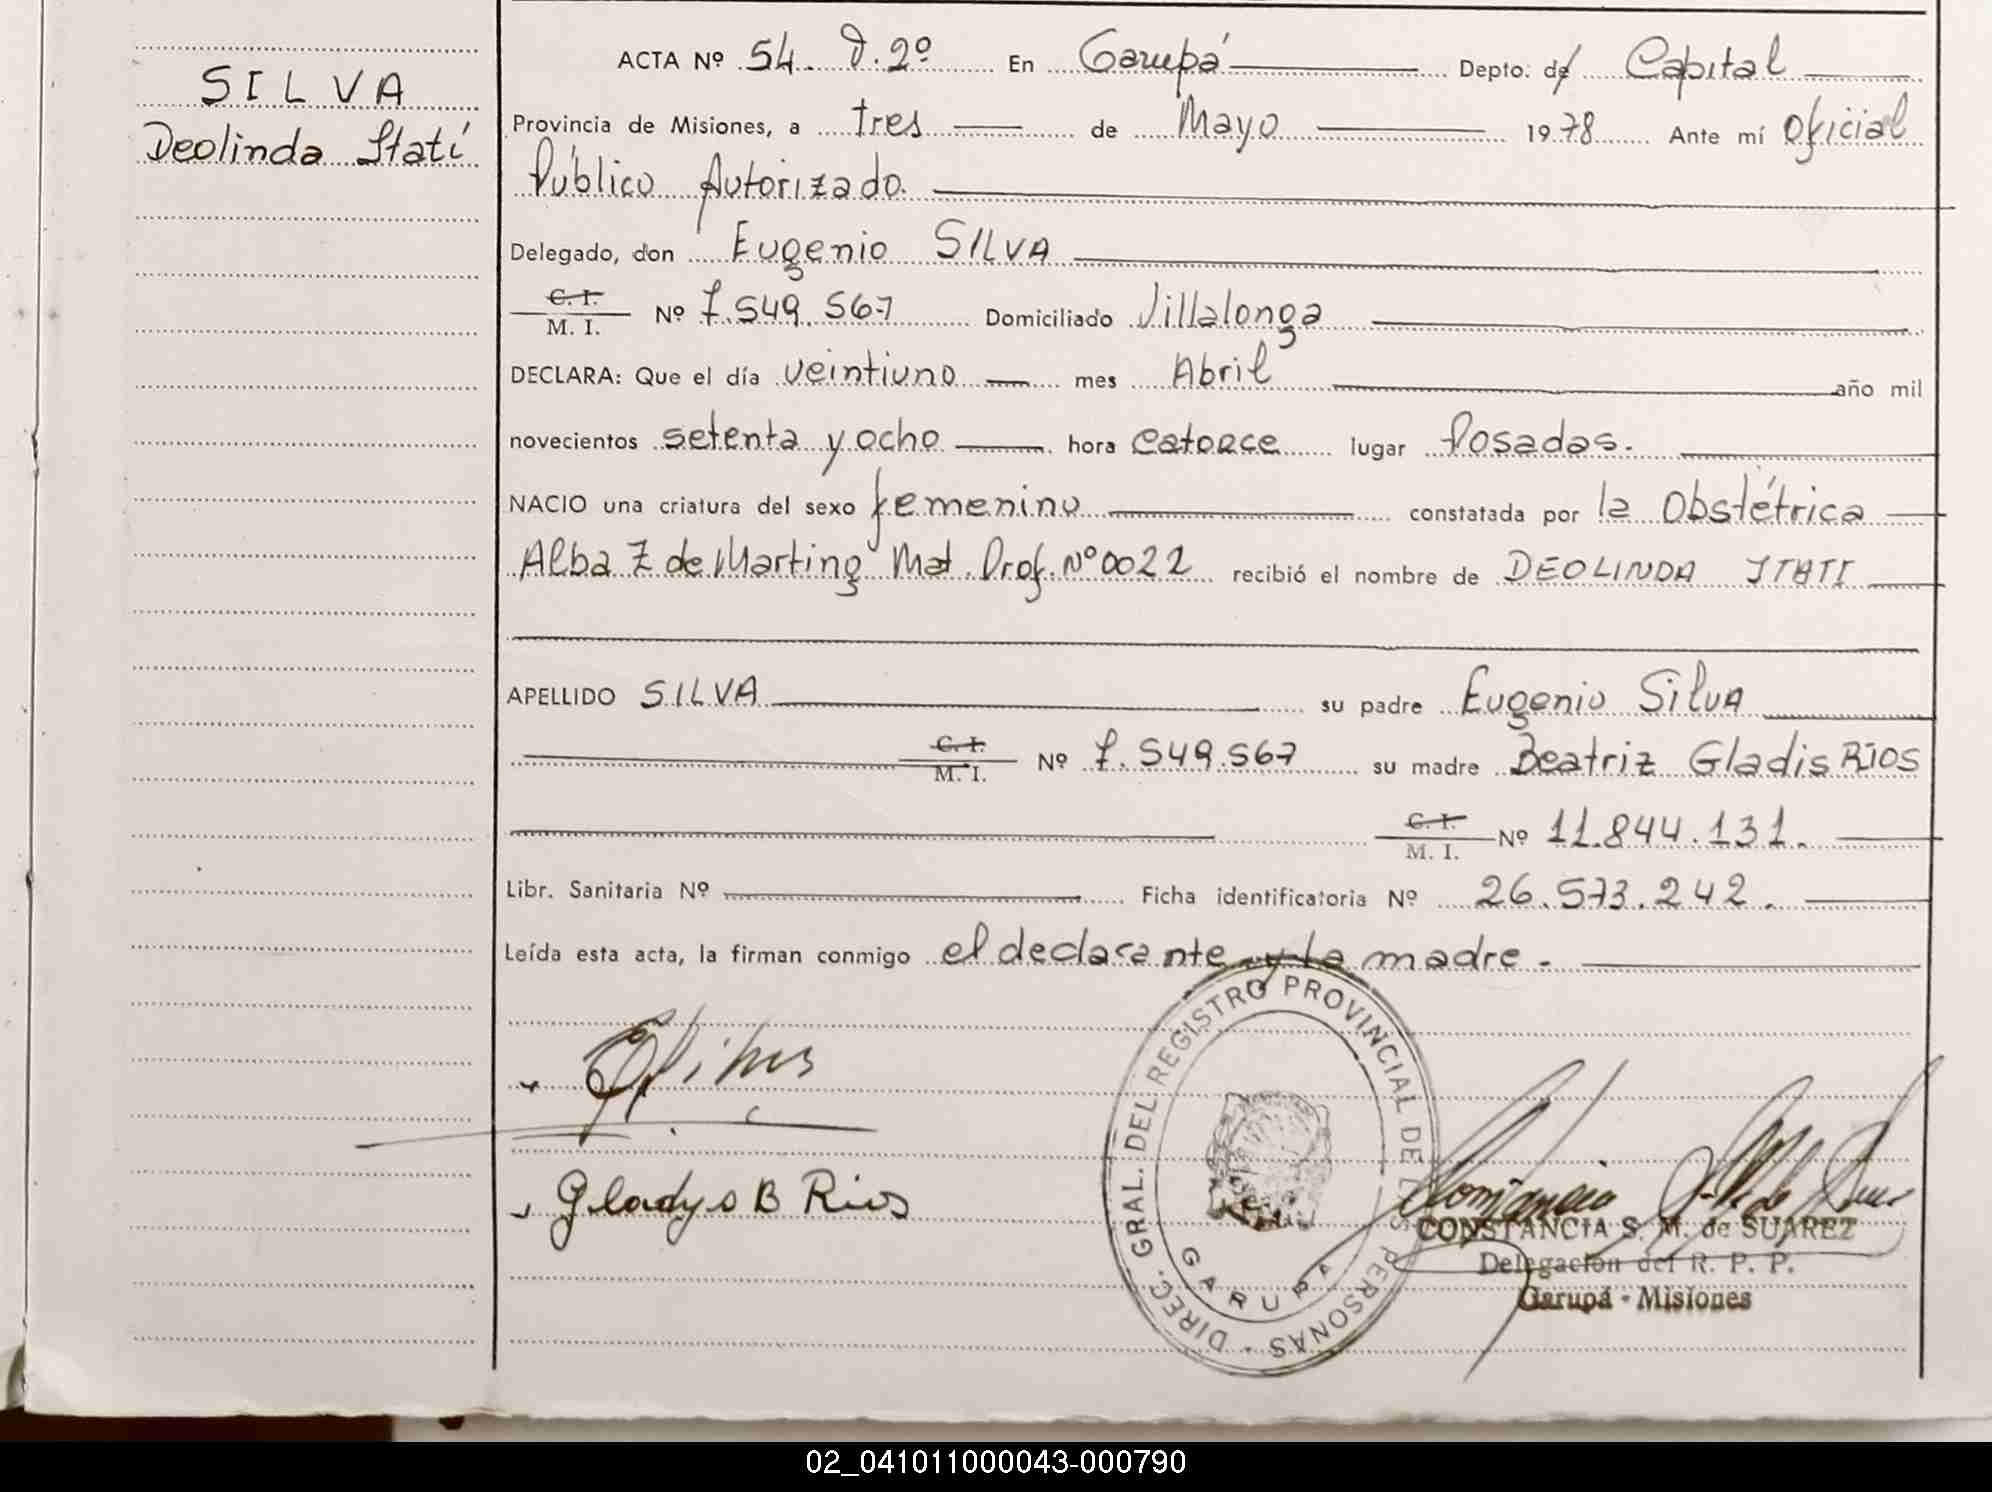 SILVA
Deolinda Itatí
ACTA Nº 54. D.2º En Garupá Depto. de Capital
Provincia de Misiones, a tres de Mayo 1978 Ante mí Oficial
Público Autorizado.
Delegado, don Eugenio SILVA
C. I.
M. I. Nº 7.549.567 Domiciliado Villalonga
DECLARA: Que el día veintiuno mes Abril año mil
novecientos setenta y ocho hora catorce lugar Posadas.
NACIO una criatura del sexo femenino constatada por la Obstétrica
Alba Z de Marting Mat. Prof. Nº 0022 recibió el nombre de DEOLINDA ITATI
APELLIDO SILVA su padre Eugenio Silva
C. I.
M. I. Nº 7.549.567 su madre Beatriz Gladis RIOS
C. I.
M. I. Nº 11.844.131.
Libr. Sanitaria Nº Ficha identificatoria Nº 26.573.242.
Leída esta acta, la firman conmigo el declarante y la madre.-
Gladys B Rios
DIREC. GRAL. DEL REGISTRO PROVINCIAL DE LAS PERSONAS
GARUPA
CONSTANCIA S. M. de SUAREZ
Delegación del R. P. P.
Garupá - Misiones
02_041011000043-000790